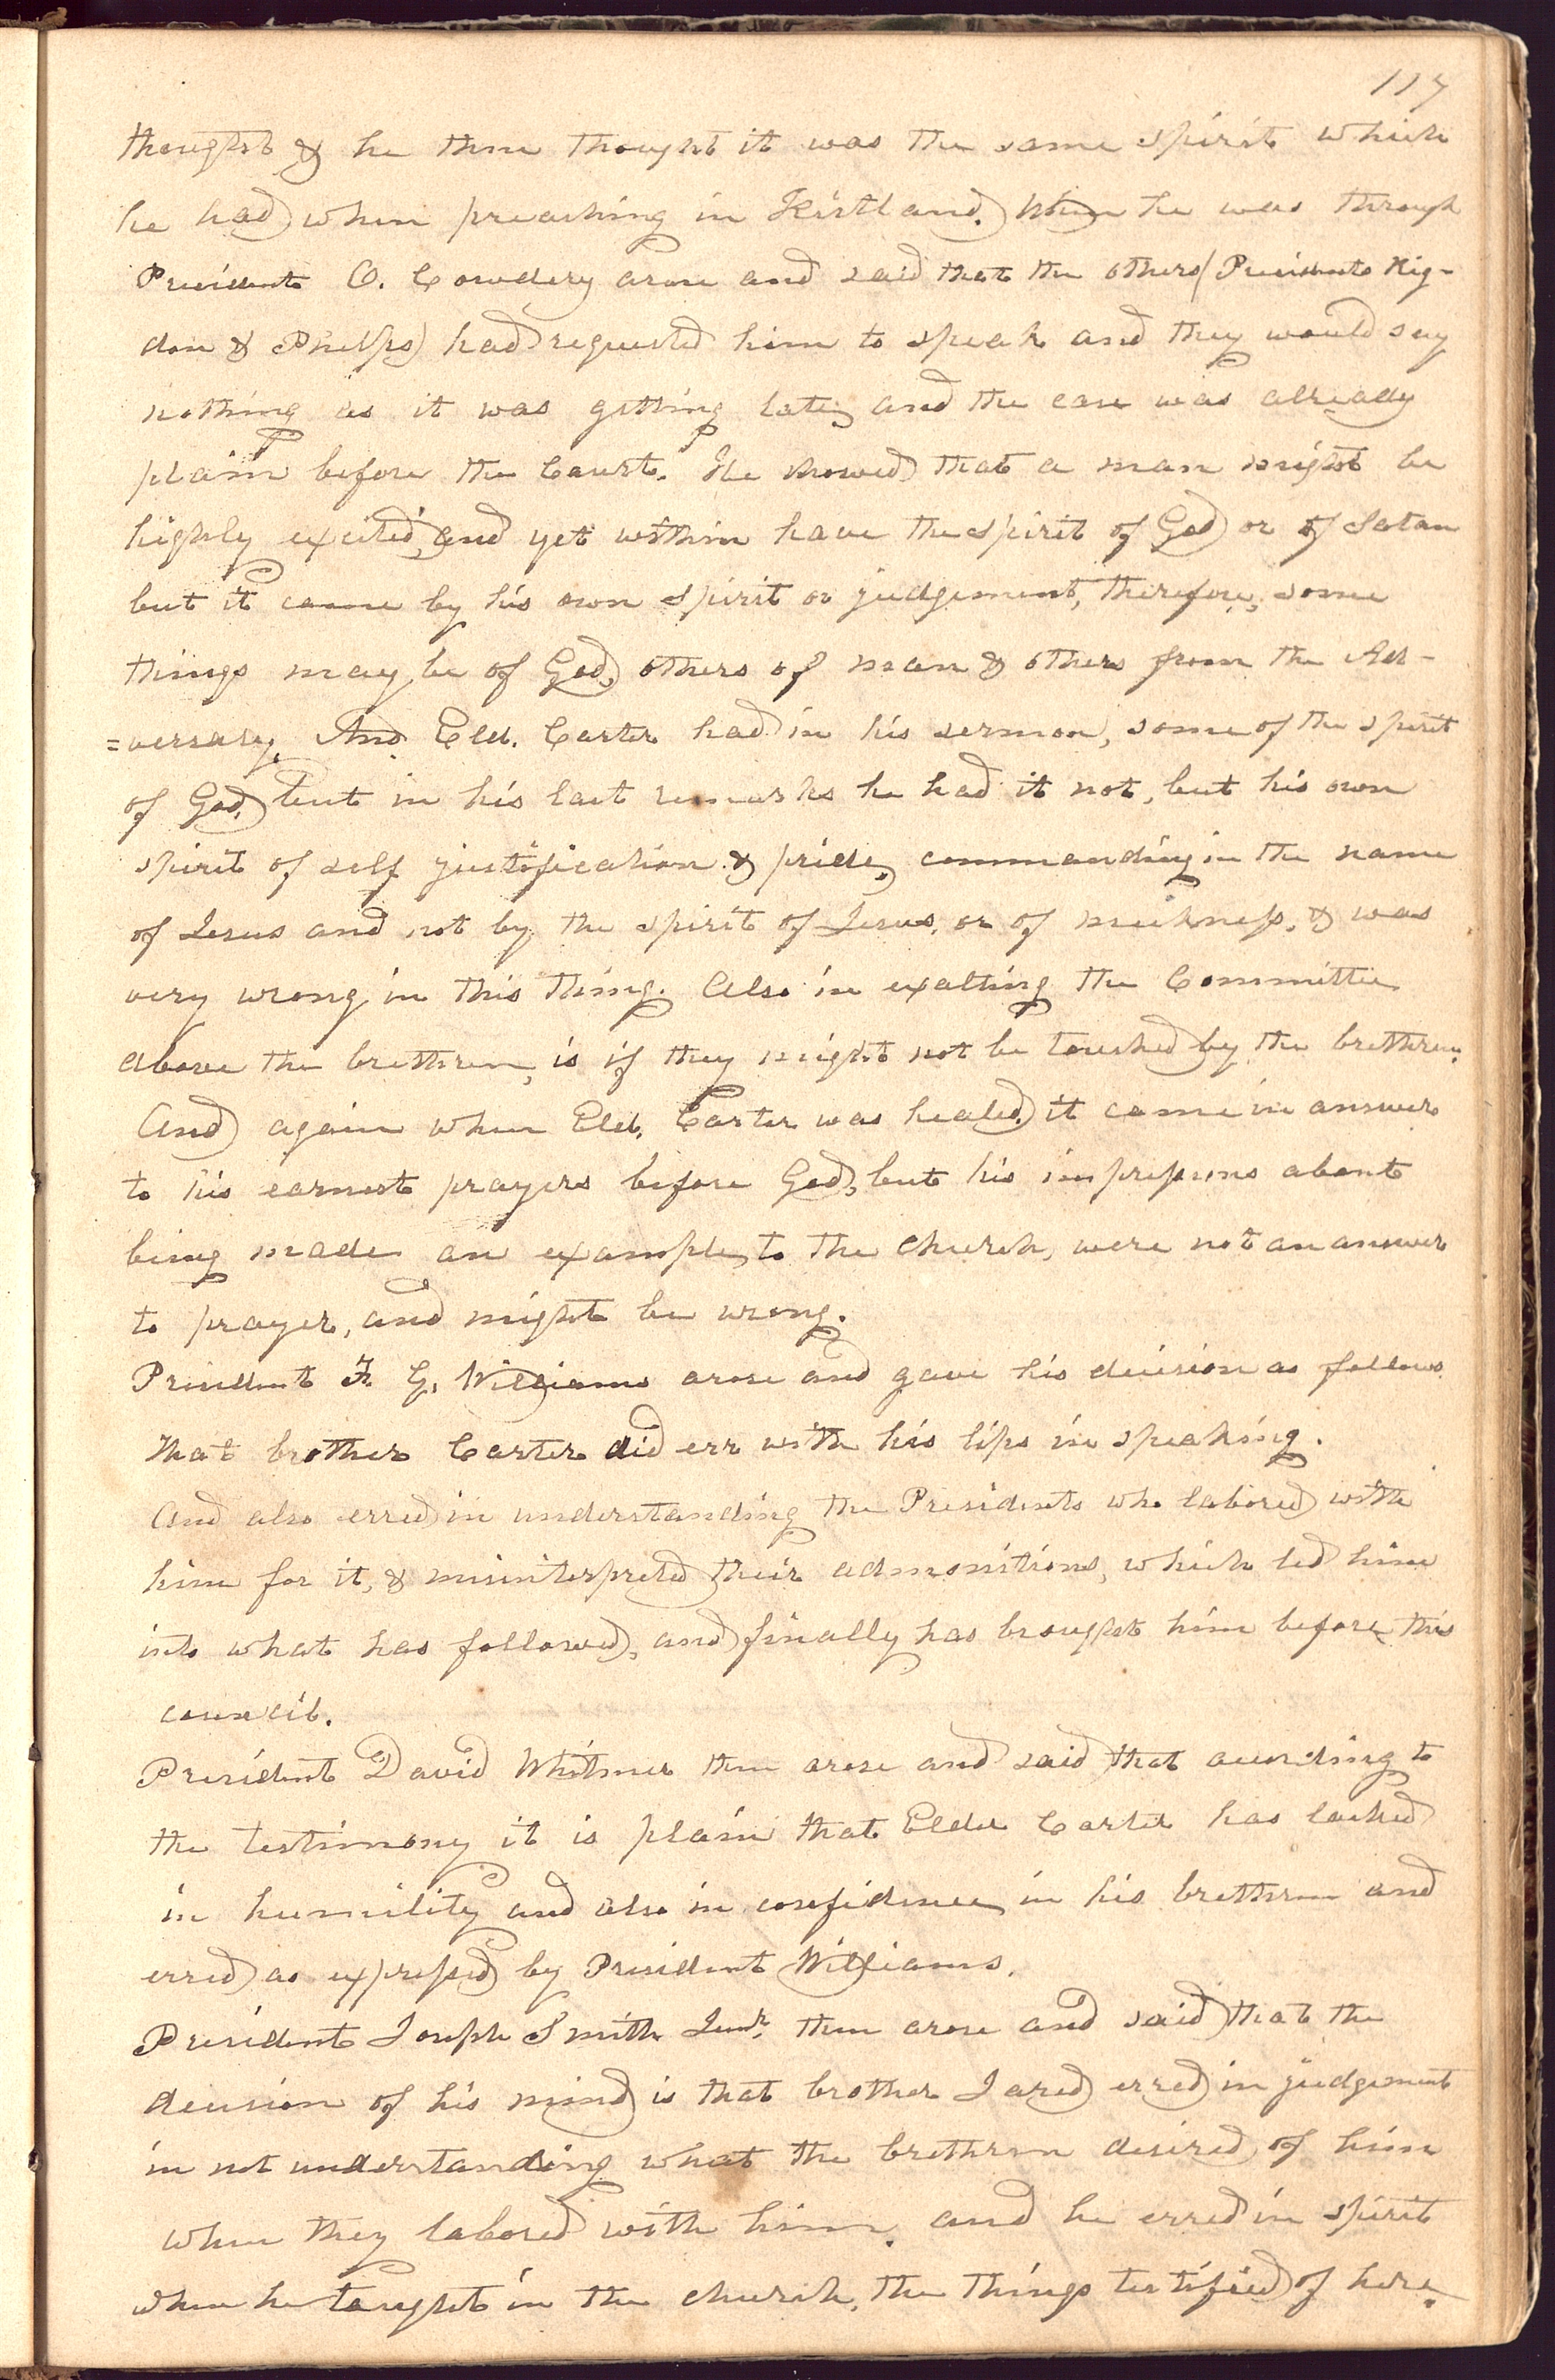 117
thought & he then thought it was the same spirit which
he had when preaching in Kirtland. When he was through
President O. Cowdery arose and said that the others (Presidents Rig-
don & Phelps) had requested him to speak and they would say
nothing as it was getting late, and the case was already
plain before the Court. He showed that a man might be
highly excited, and yet within have the spirit of God or of Satan
but it came by his own spirit or judgement, therefore, some
things may be of God, others of man & others from the Ad-
=versary. And Eld. Carter had in his sermon, some of the spirit
of God, but in his last remarks he had it not, but his own
spirit of self justification & pride, commanding in the name
of Jesus and not by the spirit of Jesus, or of meekness, & was
very wrong in this thing. Also in exalting the Committee
above the brethren, is if they might not be touched by the brethren.
And again when Eld. Carter was healed, it came in answer
to his earnest prayers before God, but his impressions about
being made an example, to the church, were not an answer
to prayer, and might be wrong.
President F. G. Williams arose and gave his decision as follows
that brother Carter did err with his lips in speaking.
And also erred in understanding the Presidents who labored with
him for it, & misinterpreted their admonitions, which led him
into what has followed, and finally has brought him before this
council.
President David Whitmer then arose and said that according to
the testimony it is plain that Elder Carter has lacked
in humility and also in confidence in his brethren and
erred as expressed by President Williams.
President Joseph Smith Junr. then arose and said that the
decision of his mind is that brother Jared erred in judgement
in not understanding what the brethren desired of him
when they labored with him. and he erred in spirit
when he taught in the church, the things testified of here.